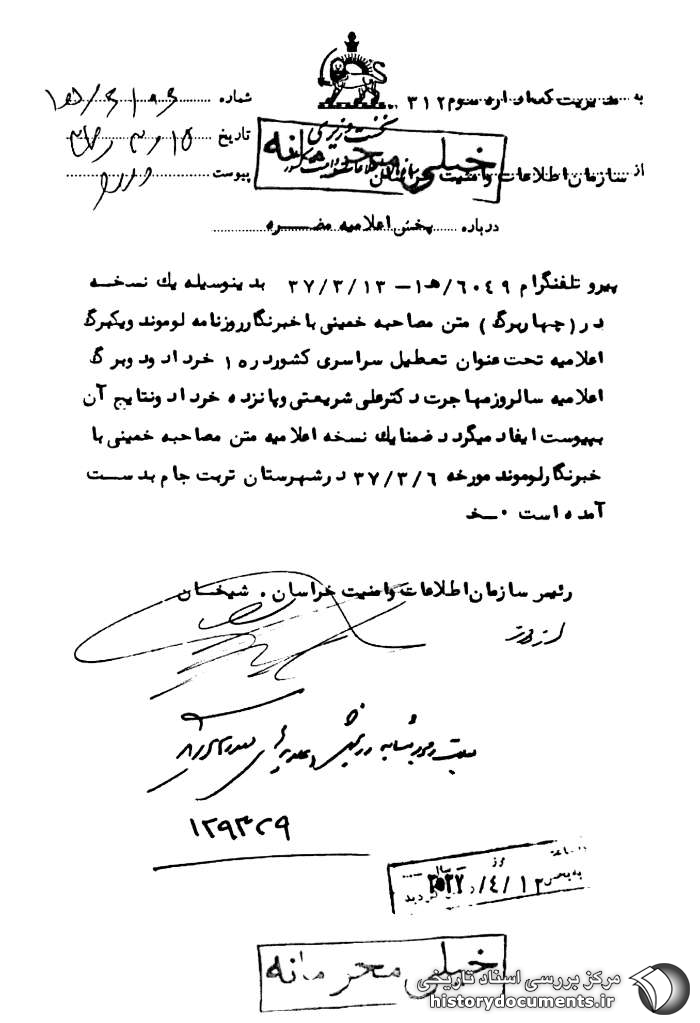 به مدیریت کل اداره سوم ۳۱۲
شماره
نخست وزیری
تاریخ
خیلی محرمانه
از سازمان اطلاعات و امنیت خراسان
پیوست
درباره پخش اعلامیه مضره
پیرو تلفنگرام ۶۰۴۹/ه‍۱ – ۳۷/۳/۱۳ بدینوسیله یك نسخه
در (چهاربرگ) متن مصاحبه خمینی با خبرنگار روزنامه لوموند ویکبرگ
اعلامیه تحت عنوان تعطیل سراسری کشور در ۱۵ خرداد ودوبرگ
اعلامیه سالروز مهاجرت دکتر علی شریعتی وپانزده خرداد ونتایج آن
بپیوست ایفاد میگردد ضمنا یك نسخه اعلامیه متن مصاحبه خمینی با
خبرنگار لوموند مورخه ۳۷/۳/۶ در شهرستان تربت جام بدست
آمده است ۰ خ
رئیس سازمان اطلاعات وامنیت خراسان . شیخان
۱۲۹۳۲۹
۲۵۳۷/۴/۱۲
خیلی محرمانه
مرکز بررسی اسناد تاریخی
historydocuments.ir